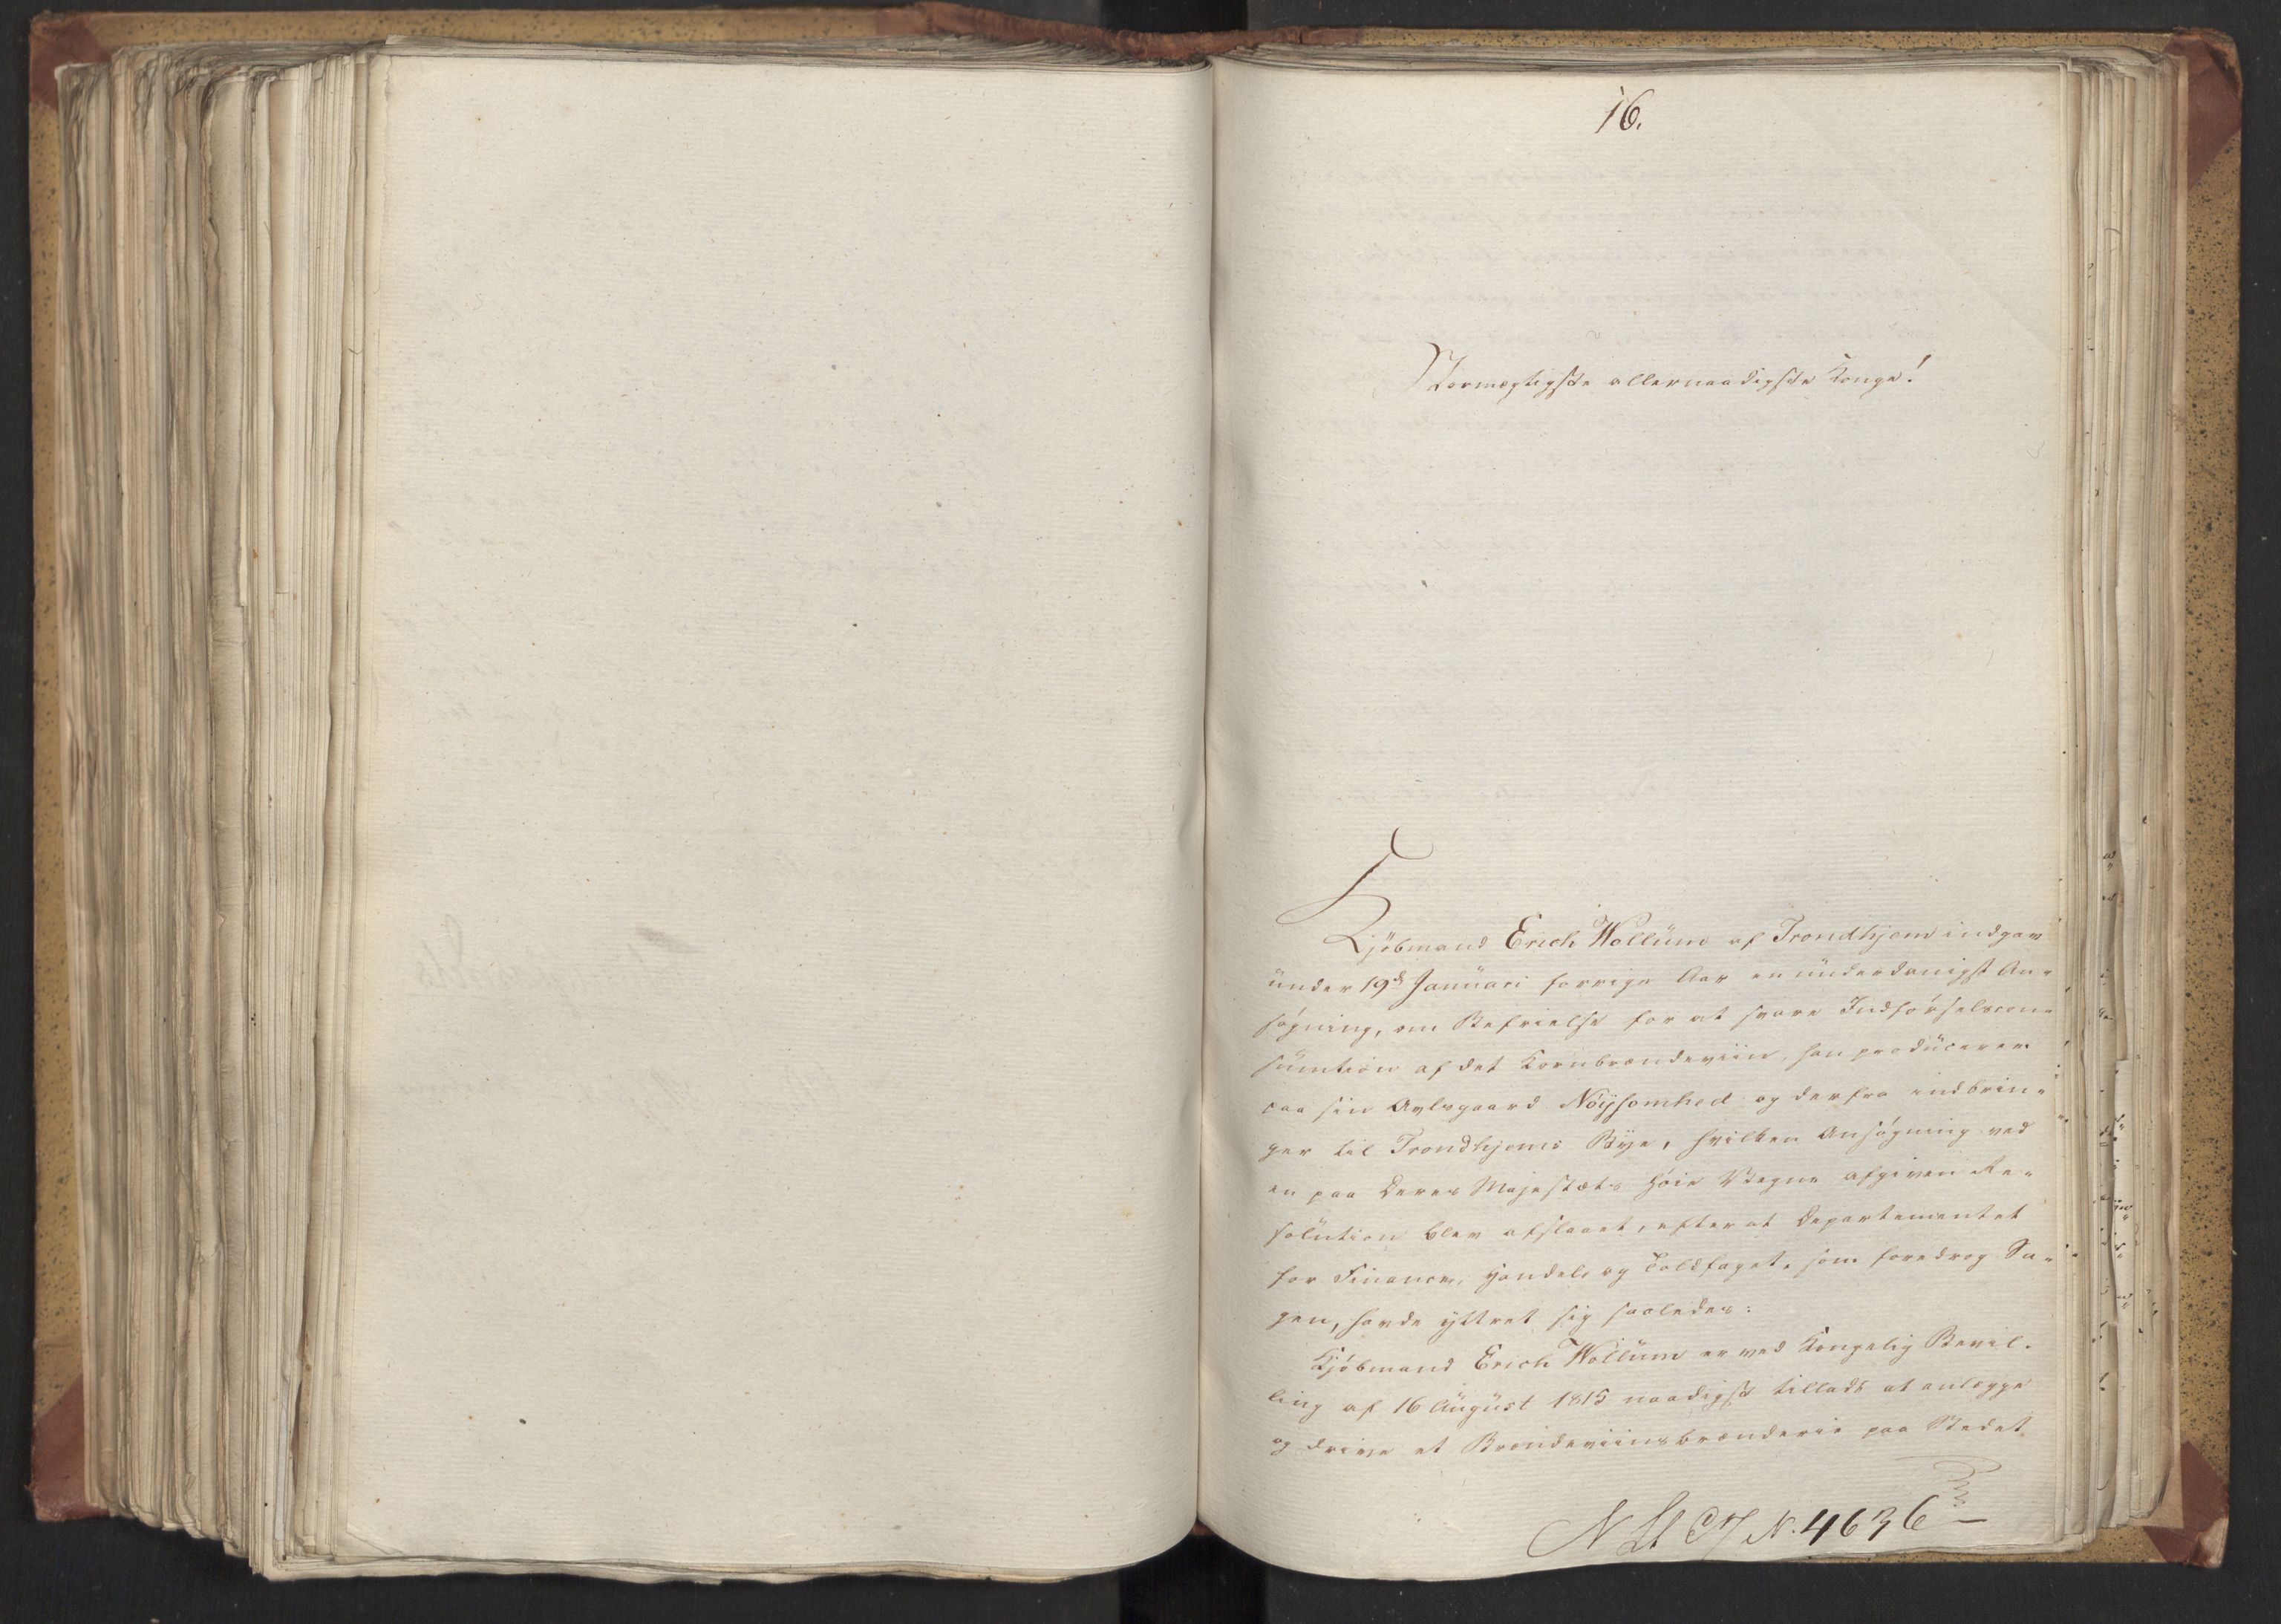 16.
Stormægtigste allernaadigste Konge!
Kjöbmand Erich Wollüm af Trondhjem indgav
ünder 19de Janüari forrige Aar en ünderdanigst An-
søgning, om Befrielse for at svare Indförselscon-
sümtion af det Kornbrændeviin, han prodücerer
paa sin Avlsgaard Nöysomhed og derfra indbrin-
ger til Trondhjems Bye, hvilken Ansögning ved
en paa Deres Majestæts Höie Vegne afgiven Re-
solütion blev afslaaet, efterat Departementet
for Financer, Handels og Toldfaget, som foredrog Sa-
gen, havde yttret sig saaledes:
Kjöbmand Erich Wollüm er ved Kongelig Bevil-
ling af 16 Aügüst 1815 naadigst tilladt at anlægge
og drive et Brændeviinsbrænderie paa Stedet
N. 4636